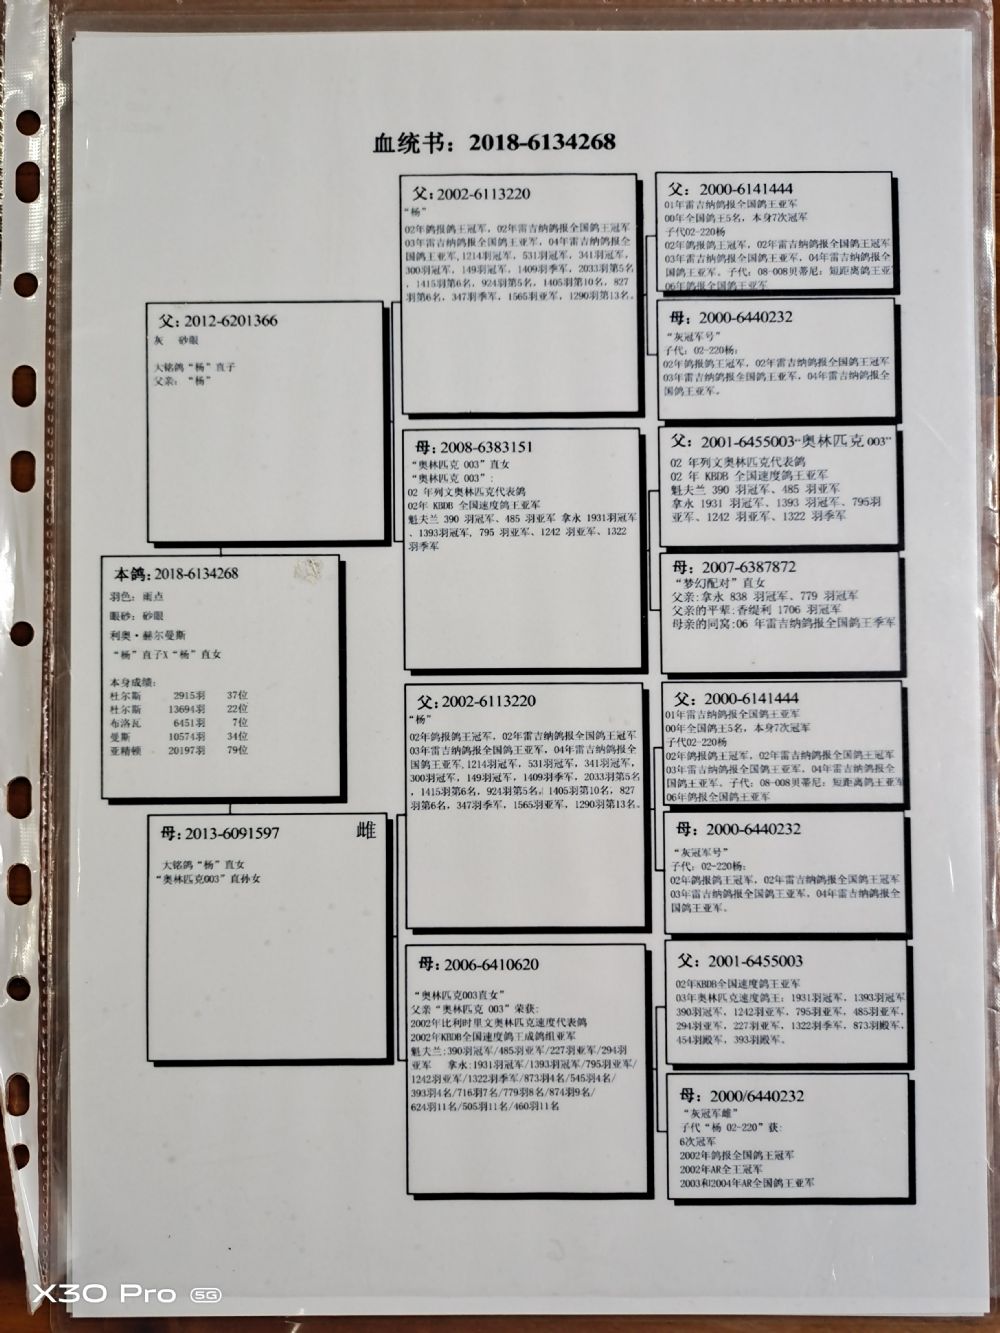 血统书：2018-6134268
父:2012-6201366
灰 砂眼
大铭鸽“杨”直子
父亲：“杨”
本鸽:2018-6134268
羽色：雨点
眼砂：砂眼
利奥·赫尔曼斯
“杨”直子X“杨”直女
本身成绩:
杜尔斯 2915羽 37位
杜尔斯 13694羽 22位
布洛瓦 6451羽 7位
曼斯 10574羽 34位
亚精顿 20197羽 79位
母:2013-6091597 雌
大铭鸽“杨”直女
“奥林匹克003”直孙女
父:2002-6113220
“杨”
02年鸽报鸽王冠军，02年雷吉纳鸽报全国鸽王冠军
03年雷吉纳鸽报全国鸽王亚军，04年雷吉纳鸽报全
国鸽王亚军,1214羽冠军，531羽冠军，341羽冠军，
300羽冠军，149羽冠军，1409羽季军，2033羽第5名
，1415羽第6名，924羽第5名，1405羽第10名，827
羽第6名，347羽季军，1565羽亚军，1290羽第13名。
母:2008-6383151
“奥林匹克 003”直女
“奥林匹克 003”：
02 年列文奥林匹克代表鸽
02年 KBDB 全国速度鸽王亚军
魁夫兰 390 羽冠军、485 羽亚军 拿永 1931羽冠军
、1393羽冠军, 795 羽亚军、1242 羽亚军、1322
羽季军
父:2002-6113220
“杨”
02年鸽报鸽王冠军，02年雷吉纳鸽报全国鸽王冠军
03年雷吉纳鸽报全国鸽王亚军，04年雷吉纳鸽报全
国鸽王亚军,1214羽冠军，531羽冠军，341羽冠军，
300羽冠军，149羽冠军，1409羽季军，2033羽第5名
，1415羽第6名，924羽第5名，1405羽第10名，827
羽第6名，347羽季军，1565羽亚军，1290羽第13名。
母:2006-6410620
“奥林匹克003直女”
父亲“奥林匹克 003”荣获:
2002年比利时里文奥林匹克速度代表鸽
2002年KBDB全国速度鸽王成鸽组亚军
魁夫兰:390羽冠军/485羽亚军/227羽亚军/294羽
亚军 拿永:1931羽冠军/1393羽冠军/795羽亚军/
1242羽亚军/1322羽季军/873羽4名/545羽4名/
393羽4名/716羽7名/779羽8名/874羽9名/
624羽11名/505羽11名/460羽11名
父：2000-6141444
01年雷吉纳鸽报全国鸽王亚军
00年全国鸽王5名，本身7次冠军
子代02-220杨
02年鸽报鸽王冠军，02年雷吉纳鸽报全国鸽王冠军
03年雷吉纳鸽报全国鸽王亚军，04年雷吉纳鸽报全
国鸽王亚军。子代：08-008贝蒂尼：短距离鸽王亚
06年鸽报全国鸽王亚军
母：2000-6440232
“灰冠军号”
子代：02-220杨:
02年鸽报鸽王冠军，02年雷吉纳鸽报全国鸽王冠军
03年雷吉纳鸽报全国鸽王亚军，04年雷吉纳鸽报全
国鸽王亚军。
父：2001-6455003“奥林匹克 003”
02 年列文奥林匹克代表鸽
02 年 KBDB 全国速度鸽王亚军
魁夫兰 390 羽冠军、485 羽亚军
拿永 1931 羽冠军、1393 羽冠军、795羽
亚军、1242 羽亚军、1322 羽季军
母：2007-6387872
“梦幻配对”直女
父亲:拿永 838 羽冠军、779 羽冠军
父亲的平辈:香缇利 1706 羽冠军
母亲的同窝:06 年雷吉纳鸽报全国鸽王季军
父：2000-6141444
01年雷吉纳鸽报全国鸽王亚军
00年全国鸽王5名，本身7次冠军
子代02-220杨
02年鸽报鸽王冠军，02年雷吉纳鸽报全国鸽王冠军
03年雷吉纳鸽报全国鸽王亚军，04年雷吉纳鸽报全
国鸽王亚军。子代：08-008贝蒂尼：短距离鸽王亚军
06年鸽报全国鸽王亚军
母：2000-6440232
“灰冠军号”
子代：02-220杨:
02年鸽报鸽王冠军，02年雷吉纳鸽报全国鸽王冠军
03年雷吉纳鸽报全国鸽王亚军，04年雷吉纳鸽报全
国鸽王亚军。
父：2001-6455003
02年KBDB全国速度鸽王亚军
03年奥林匹克速度鸽王：1931羽冠军，1393羽冠军
390羽冠军，1242羽亚军，795羽亚军，485羽亚军，
294羽亚军，227羽亚军，1322羽季军，873羽殿军，
454羽殿军，393羽殿军。
母：2000/6440232
“灰冠军雌”
子代“杨 02-220”获:
6次冠军
2002年鸽报全国鸽王冠军
2002年AR全王冠军
2003和2004年AR全国鸽王亚军
X30 Pro 5G